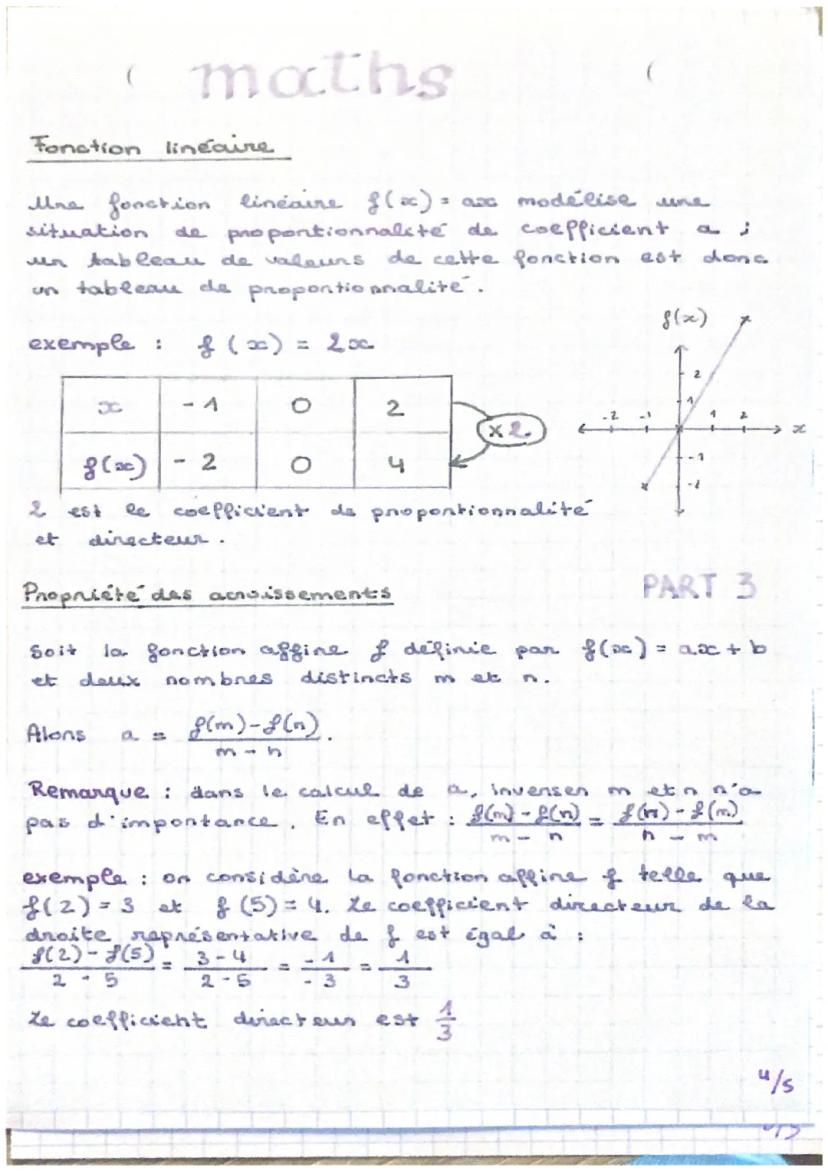 maths
Fonction linéaire
Une fonction linéaire f(x) = ax modélise une
situation de proportionnalité de coefficient a ;
un tableau de valeurs de cette fonction est donc
un tableau de proportionnalité.
exemple : f(x) = 2x
x -1 0 2
f(x) -2 0 4
x 2
f(x)
2
1
-2 -1 1 2 x
-1
-2
2 est le coefficient de proportionnalité
et directeur.
Propriété des acroissements PART 3
Soit la fonction affine f définie par f(x) = ax + b
et deux nombres distincts m et n.
Alors a = f(m)-f(n) / m - n .
Remarque : dans le calcul de a, inverser m et n n'a
pas d'importance. En effet : f(m) - f(n) / m - n = f(n) - f(m) / n - m
exemple : on considère la fonction affine f telle que
f(2) = 3 et f(5) = 4. Le coefficient directeur de la
droite représentative de f est égal à :
f(2) - f(5) / 2 - 5 = 3 - 4 / 2 - 5 = -1 / -3 = 1 / 3
Le coefficient directeur est 1 / 3
4/5